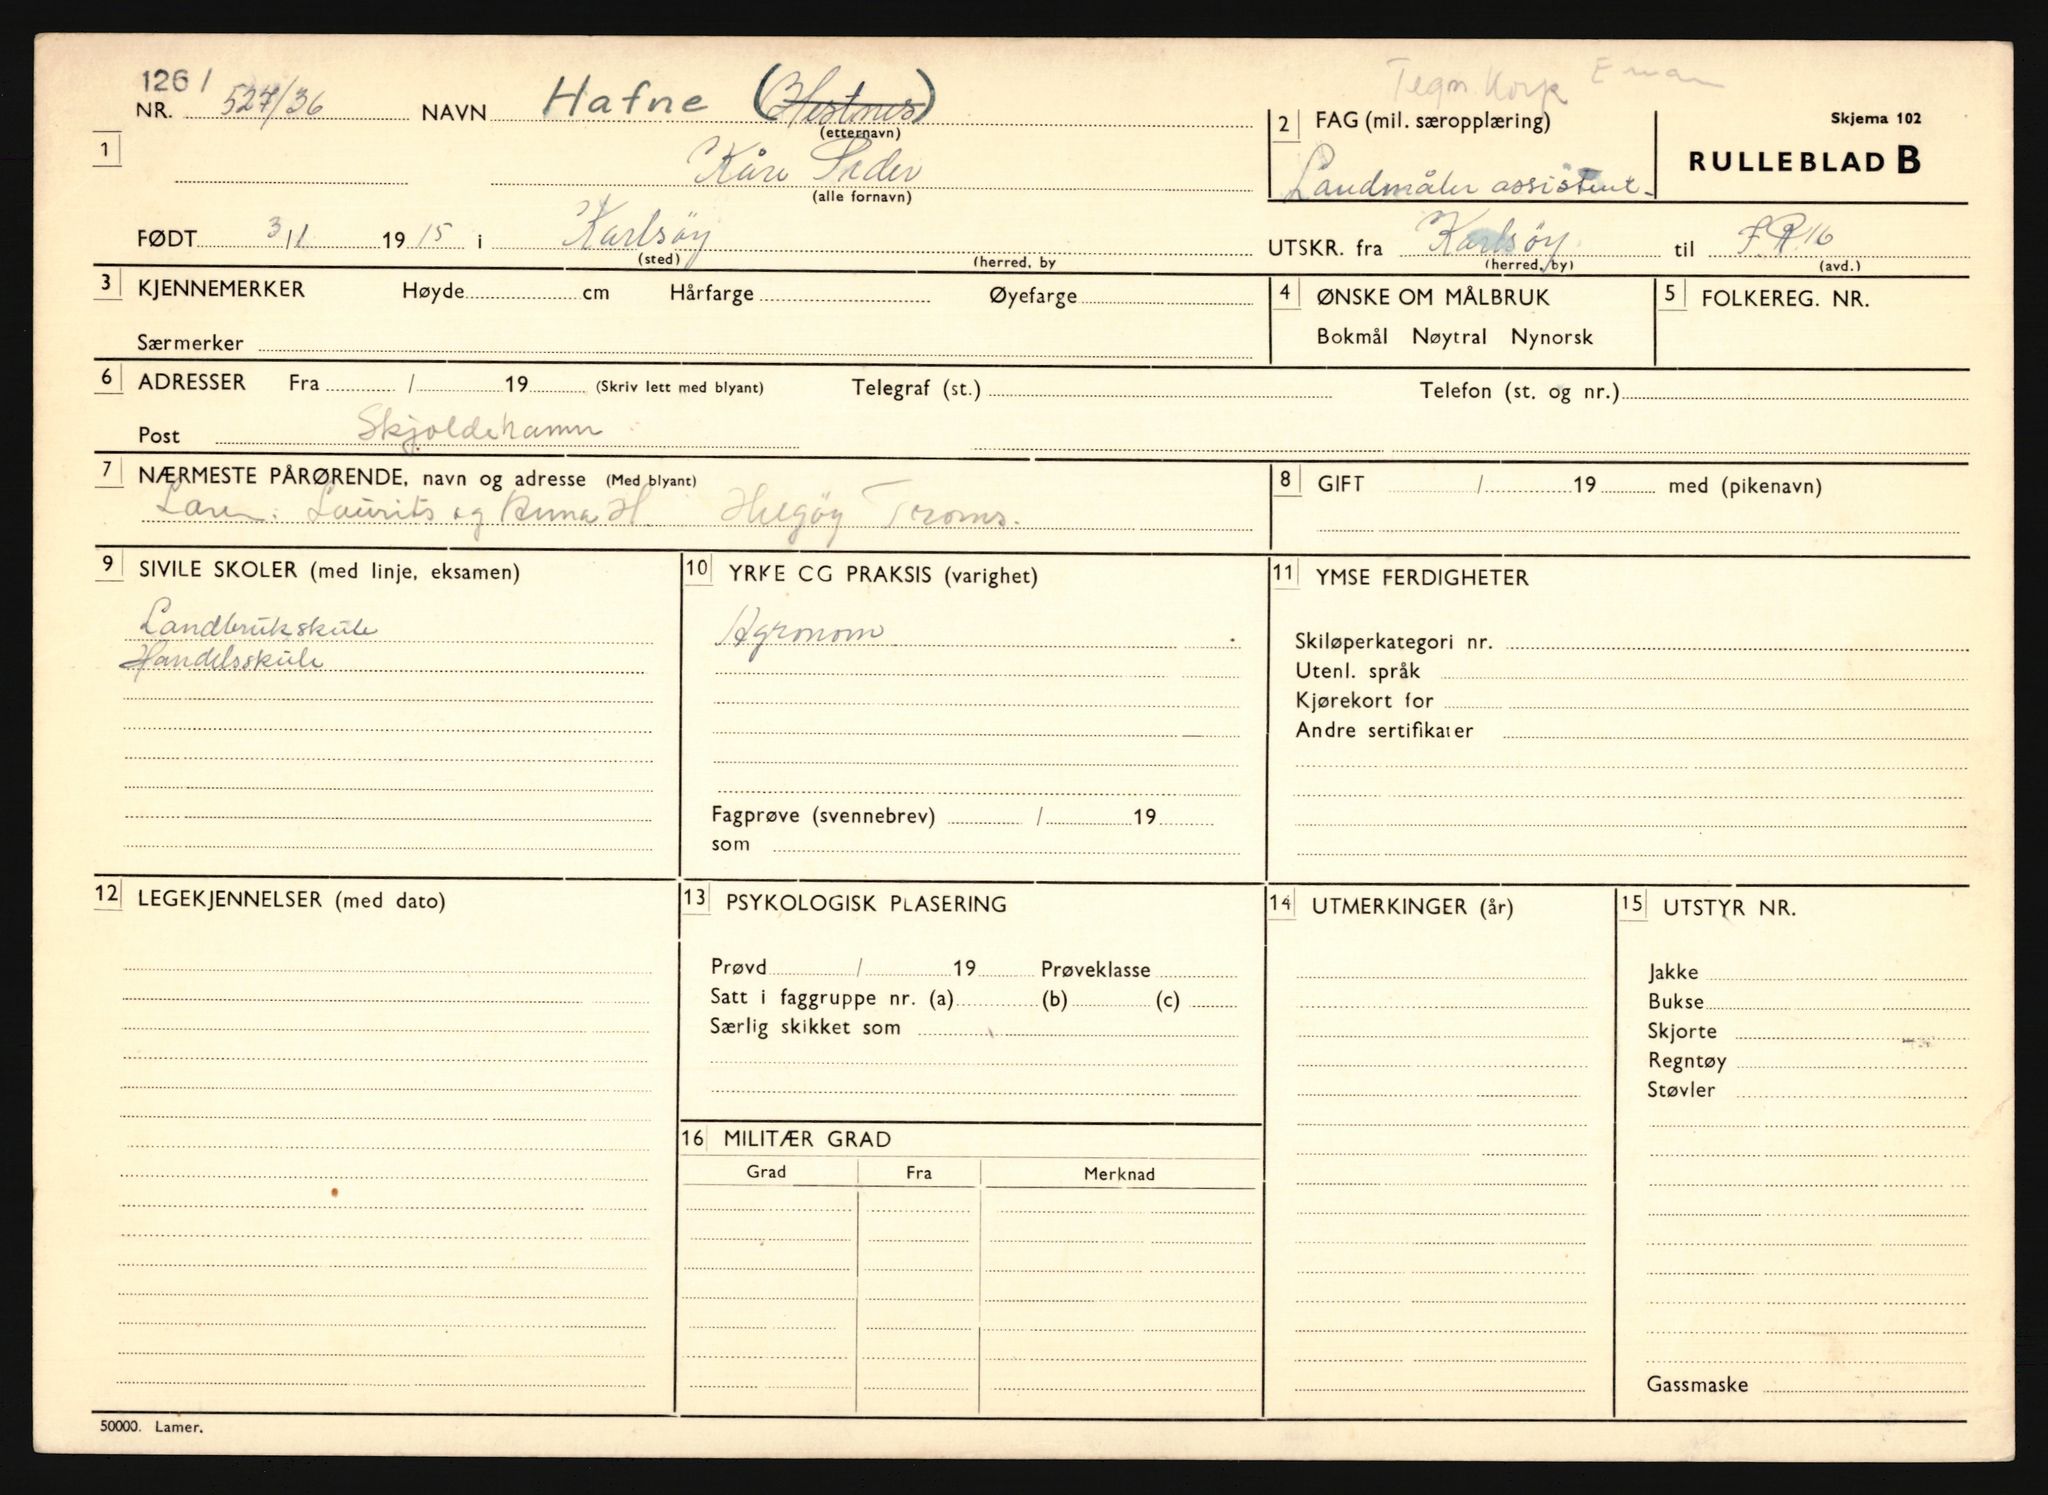 1261 Tegn. Korp
NR. 527/36 NAVN Hafne (Hestnes)
(etternavn)
1 Kåre Peder
(alle fornavn)
2 FAG (mil. særopplæring)
Landmåler assistent
Skjema 102
RULLEBLAD B
FØDT 3/1 1915 i Karlsöy
(sted) (herred, by
UTSKR. fra Karlsöy til I.R.16
(herred, by) (avd.)
3 KJENNEMERKER Høyde cm Hårfarge Øyefarge
Særmerker
4 ØNSKE OM MÅLBRUK
Bokmål Nøytral Nynorsk
5 FOLKEREG. NR.
6 ADRESSER Fra / 19 (Skriv lett med blyant) Telegraf (st.) Telefon (st. og nr.)
Post Skjoldehamn
7 NÆRMESTE PÅRØRENDE, navn og adresse (Med blyant)
Laurits og Anna H. Helgöy Troms.
8 GIFT / 19 med (pikenavn)
9 SIVILE SKOLER (med linje, eksamen)
Landbrukskule
Handelsskule
10 YRKE CG PRAKSIS (varighet)
Agronom
Fagprøve (svennebrev) / 19
som
11 YMSE FERDIGHETER
Skiløperkategori nr.
Utenl. språk
Kjørekort for
Andre sertifikater
12 LEGEKJENNELSER (med dato)
13 PSYKOLOGISK PLASERING
Prøvd / 19 Prøveklasse
Satt i faggruppe nr. (a) (b) (c)
Særlig skikket som
14 UTMERKINGER (år)
15 UTSTYR NR.
Jakke
Bukse
Skjorte
Regntøy
Støvler
Gassmaske
16 MILITÆR GRAD
Grad Fra Merknad
50000. Lamer.